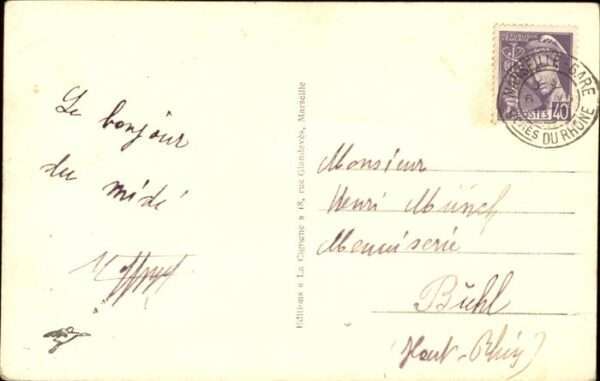 Le bonjour
du midi
Editions « La Cigogne » 18, rue Glandevès, Marseille
MARSEILLE GARE
BCHES DU RHONE
POSTES 40
Monsieur
Henri Münch
Menuiserie
Bühl
(Haut-Rhin)